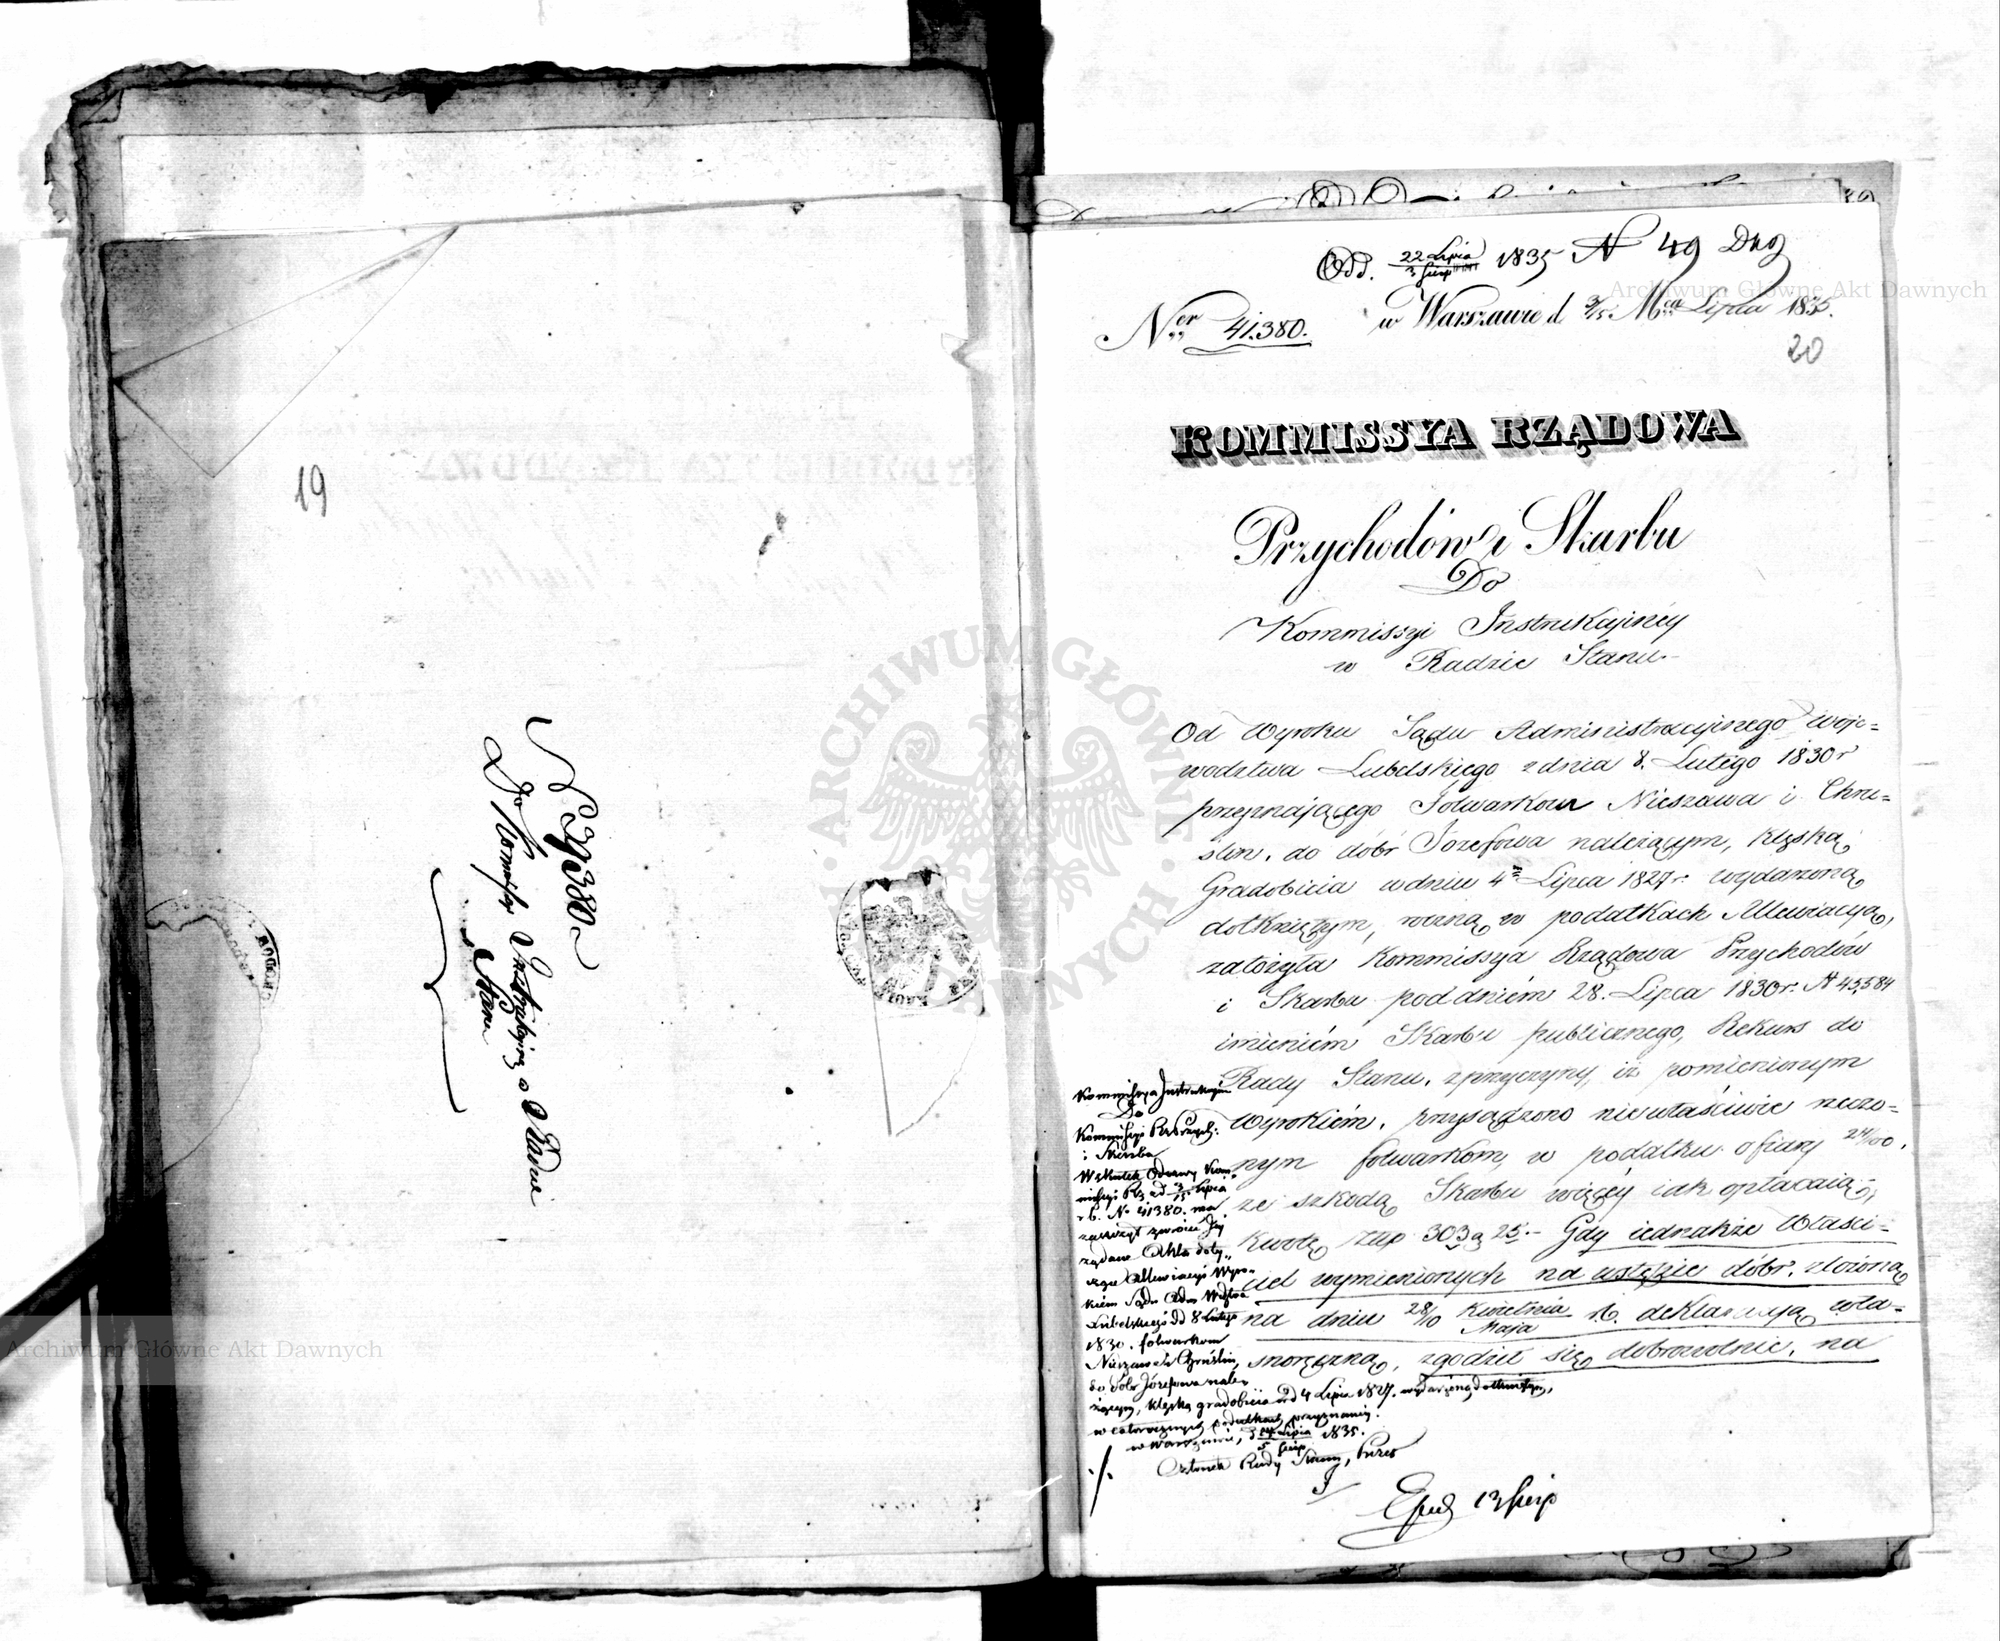 19
N 39380
Do Kommissyi Instrukcyinéy w Radzie
Stanu
Odd. 22 Lipca / 3 Sierp 1835 N 49 Dng
Ner 41.380.
w Warszawie d. 3/15 Mca Lipca 1835.
20
KOMMISSYA RZĄDOWA
Przychodów i Skarbu
Do
Kommissyi Instrukcyinéy
w Radzie Stanu.
Od Wyroku Sądu Administracyinego Woje=
wodztwa Lubelskiego z dnia 8. Lutego 1830 r
przyznaiącego Folwarkom Nieszawa i Chru=
ślin, do dóbr Józefowa należącym, klęską
Gradobicia w dniu 4 Lipca 1827 r. wydarzoną
dotkniętym, roczną w podatkach Allewiacyą,
założyła Kommissya Rządowa Przychodów
i Skarbu pod dniém 28. Lipca 1830 r. N 45,584
imieniém Skarbu publicznego, Rekurs do
Rady Stanu, z przyczyny, iż pomienionym
Wyrokiém, przysądzono niewłaściwie rzeczo=
nym folwarkom, w podatku ofiary 24/100,
ze szkodą Skarbu więcéy iak opłacaią,
kwotę złp 303 g 25.- Gdy iednakże Właści=
ciel wymienionych na wstępie dóbr, złożoną
na dniu 28/10 Kwietnia / Maja r. b. deklaracyą wła=
snoręczną, zgodził się dobrowolnie, na
Kommissya Instrukcyina
Do
Kommissyi Rz Przych:
i Skarbu
W skutek Odezwy Kom
missyi Rz z d 3/15 Lipca
r. b. N. 41380. ma
zaszczyt zwrócić Jéj
żądane Akta doty„
czące Allewiacyi Wyro=
kiem Sądu Adm Wdztwa
Lubelskiego d 8 Lutego
1830. folwarkom
Nieszawa i Chruślin,
do Dóbr Józefowa nale=
żącym, klęską gradobicia d 4 Lipca 1827. wydarzoną dotkniętym,
w całorocznych podatkach przyznanéj.
w Warszawie, d 24 Lipca / 5 Sierp 1835.
Członek Rady Stanu, Prezes
Exped 13 Sierp